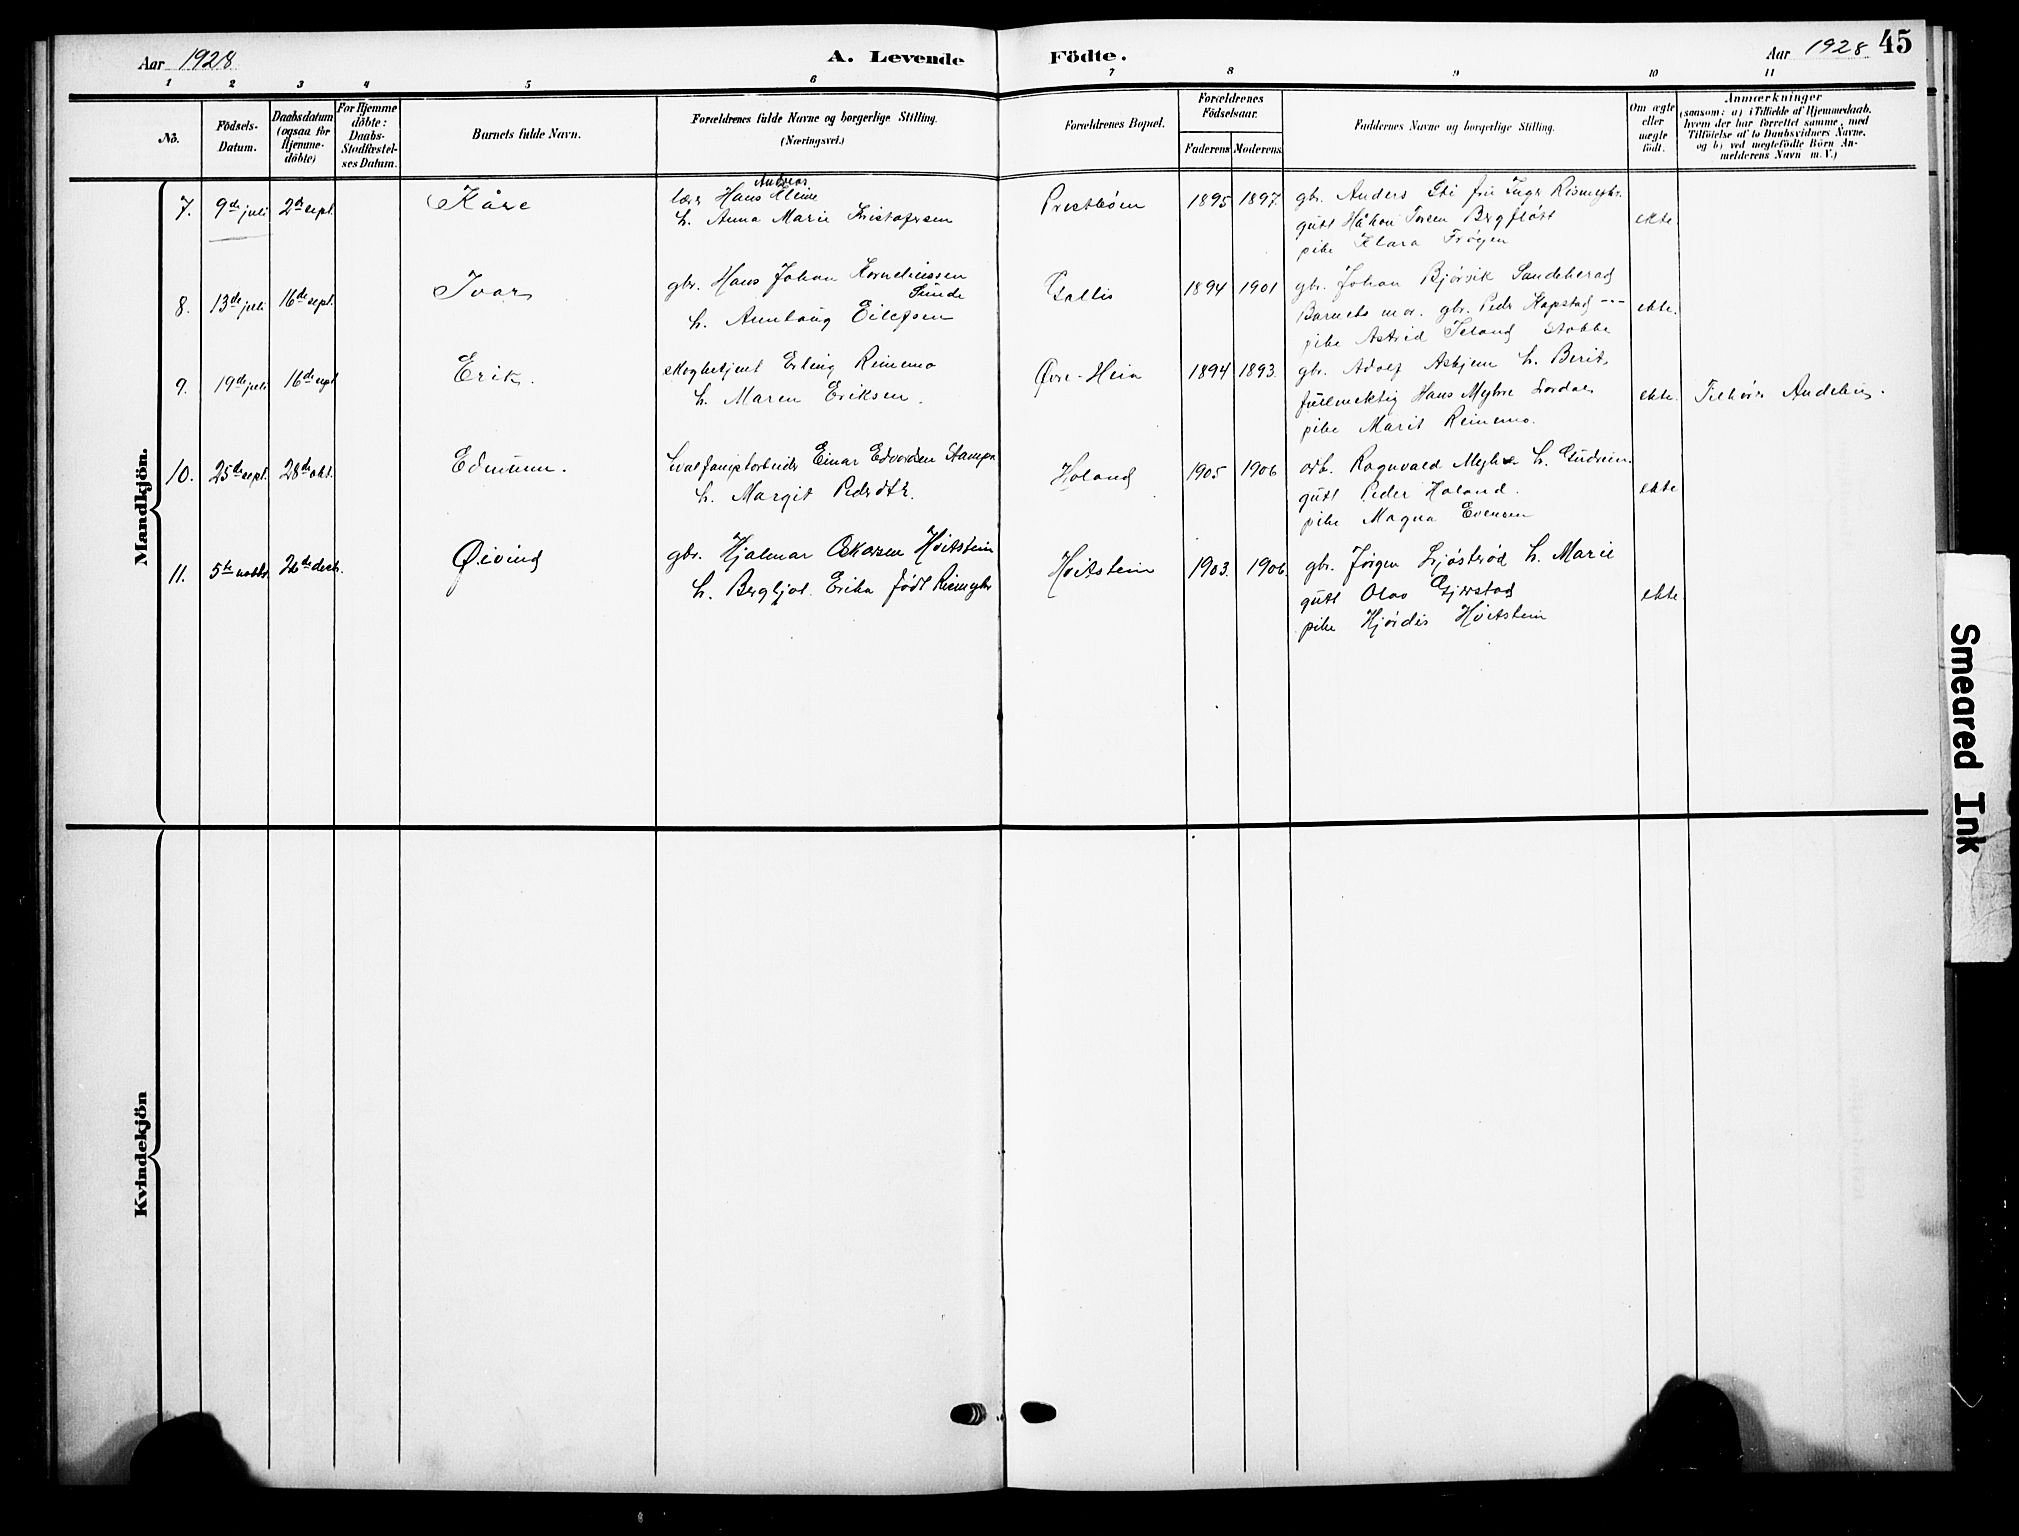 Aar 1928
A. Levende Födte.
Aar 1928 45
1 2 3 4 5 6 7 8 9 10 11
No.
Födsels-Datum.
Daabsdatum (ogsaa for Hjemme-döbte)
For Hjemme döbte: Daabs-Stadfæstel-ses Datum.
Barnets fulde Navn.
Forældrenes fulde Navne og borgerlige Stilling. (Næringsvei.)
Forældrenes Bopæl.
Forældrenes Födselsaar.
Faderens Moderens
Faddernes Navne og borgerlige Stilling.
Om ægte eller uægte födt.
Anmærkninger
(saasom: a) i Tilfælde af Hjemmedaab, hvem der har forrettet samme, med Tilföielse af to Daabsvidners Navne, og b) ved uægtefödte Börn An-melderens Navn m. V.)
Mandkjön.
7. 9de juli 2den sept. Kåre
lærer Hans Andreas Kleive
h. Anna Marie Kristofersen
Prestbøen 1895 1897.
gbr. Anders Sti fru Inger Rismyhr.
gutt Håkon Bergfløtt
pike Klara Frøyen
ekte.
8. 13de juli 16de sept. Ivar
gbr. Hans Johan Korneliussen
Sunde
h. Annlaug Eilefsen
Gallis 1894 1901
gbr. Johan Bjørvik Sandeherad
Barnets mor. gbr. Peder Kopstad
pike Astrid
ekte.
9. 19de juli 16de sept Erik.
skogbetjent Erling Reinemo
h. Maren Eriksen.
Øvre-Heia 1894 1893.
gbr. Adolf Asbjørn h. Berit,
fullmektig Hans Myhre Lardal
pike Marit Reinemo.
ekte. Tilhører Andebu.
10. 25de sept. 28de okt. Edmunn.
hvalfangstarbeider Einar Edvardsen Stamp
h. Margit Pedersdtr.
Holand 1905 1906
arb. Ragnvald Myhre h. Gudrun.
gutt Peder Holand.
pike Magna Evensen
ekte
11. 5te novbr. 26de decb. Øivind
gbr. Hjalmar Oskarsen Hvitstein
h. Bergljot Erika født Rismyhr
Hvitstein 1903. 1906.
gbr. Jørgen Ljøsterød h. Marie
gutt Olav Gjerstad
pike Hjørdis Hvitstein
ekte.
Kvindekjön
Smeared Ink